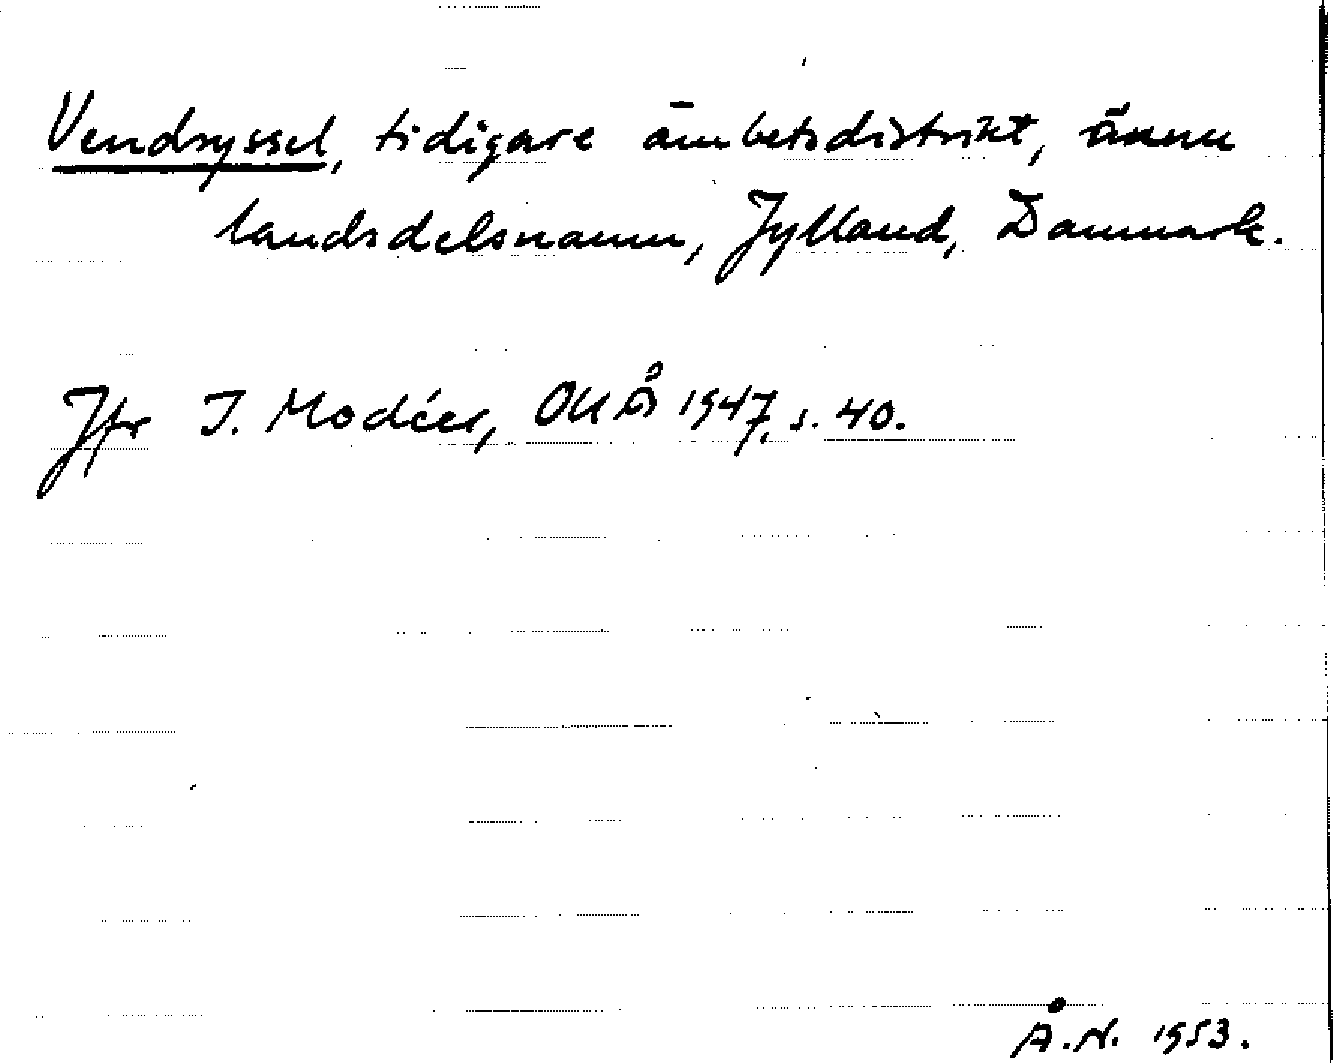 Vendsyssel, tidigare ämbetsdistrikt, ännu
landsdelsnamn, Jylland, Danmark.
Jfr I. Modéer, OUÅ 1947, s. 40.
Å.N. 1953.